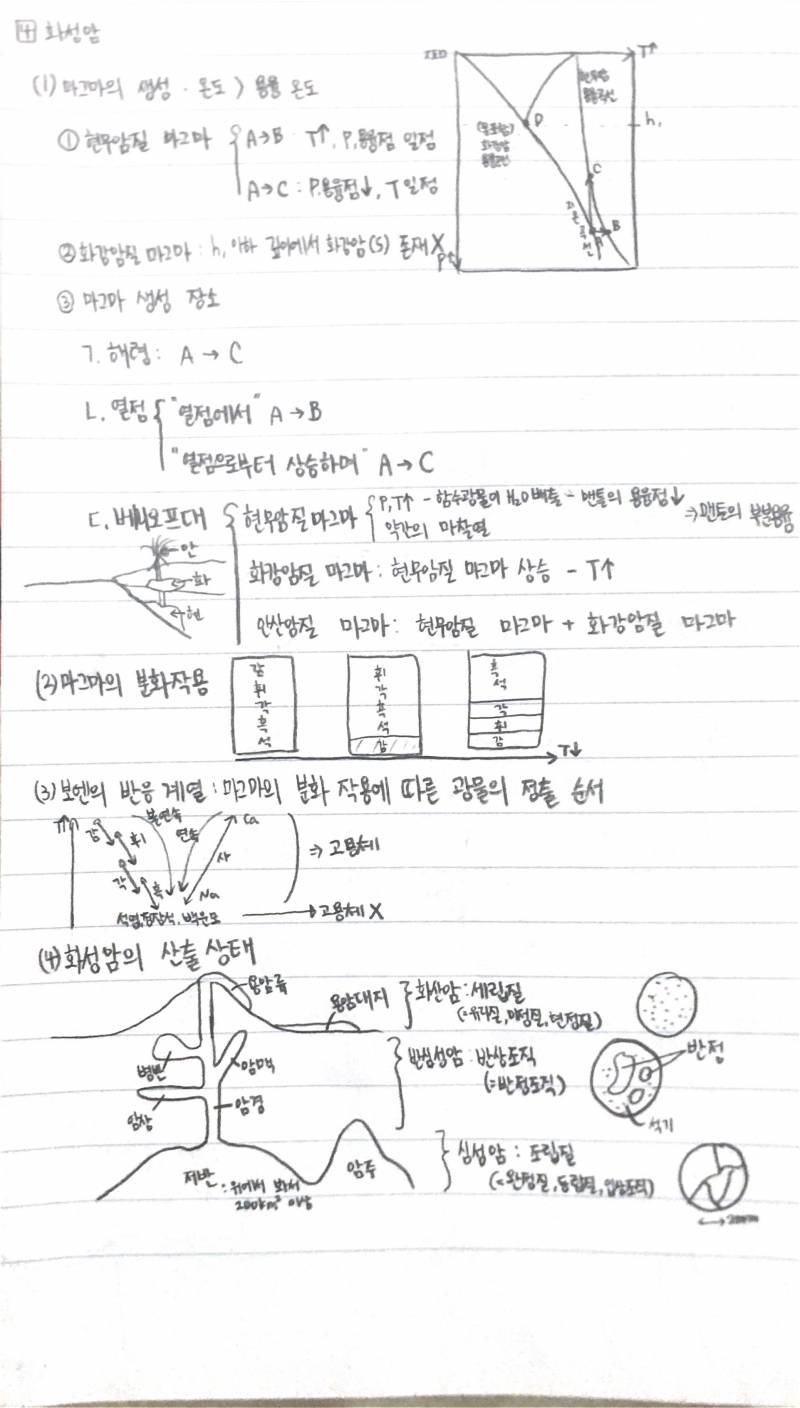 4 화성암
(1) 마그마의 생성 · 온도 > 용융 온도
① 현무암질 마그마 A→B T↑, P,용융점 일정
A→C : P,용융점↓, T 일정
② 화강암질 마그마 : h, 이하 깊이에서 화강암(S) 존재 X
T↑
현무암
용융곡선
D
h,
화강암
용융곡선
C
지온곡선
A
B
P↑
③ 마그마 생성 장소
ㄱ. 해령 : A → C
ㄴ. 열점 "열점에서" A → B
"열점으로부터 상승하며" A → C
ㄷ. 베니오프대 현무암질 마그마 P,T↑ - 함수광물이 H₂O 배출 - 맨틀의 용융점↓
약간의 마찰열
⇒ 맨틀의 부분용융
화강암질 마그마 : 현무암질 마그마 상승 - T↑
안산암질 마그마 : 현무암질 마그마 + 화강암질 마그마
안
화
현
(2) 마그마의 분화작용
감
휘
각
흑
석
휘
각
흑
석
감
흑
석
각
휘
감
T↓
(3) 보엔의 반응 계열 : 마그마의 분화 작용에 따른 광물의 정출 순서
T↑
감
휘
각
흑
불연속
연속
Ca
사
Na
⇒ 고용체
석영,정장석, 백운모 → 고용체 X
(4) 화성암의 산출 상태
용암류
용암대지
화산암 : 세립질
(=유리질, 미정질, 현정질)
병반
암맥
반심성암 : 반상조직
(=반정조직)
반정
석기
암상
암경
저반 : 위에서 봐서
200km² 이상
암주
심성암 : 조립질
(=완정질, 등립질, 입상조직)
2mm